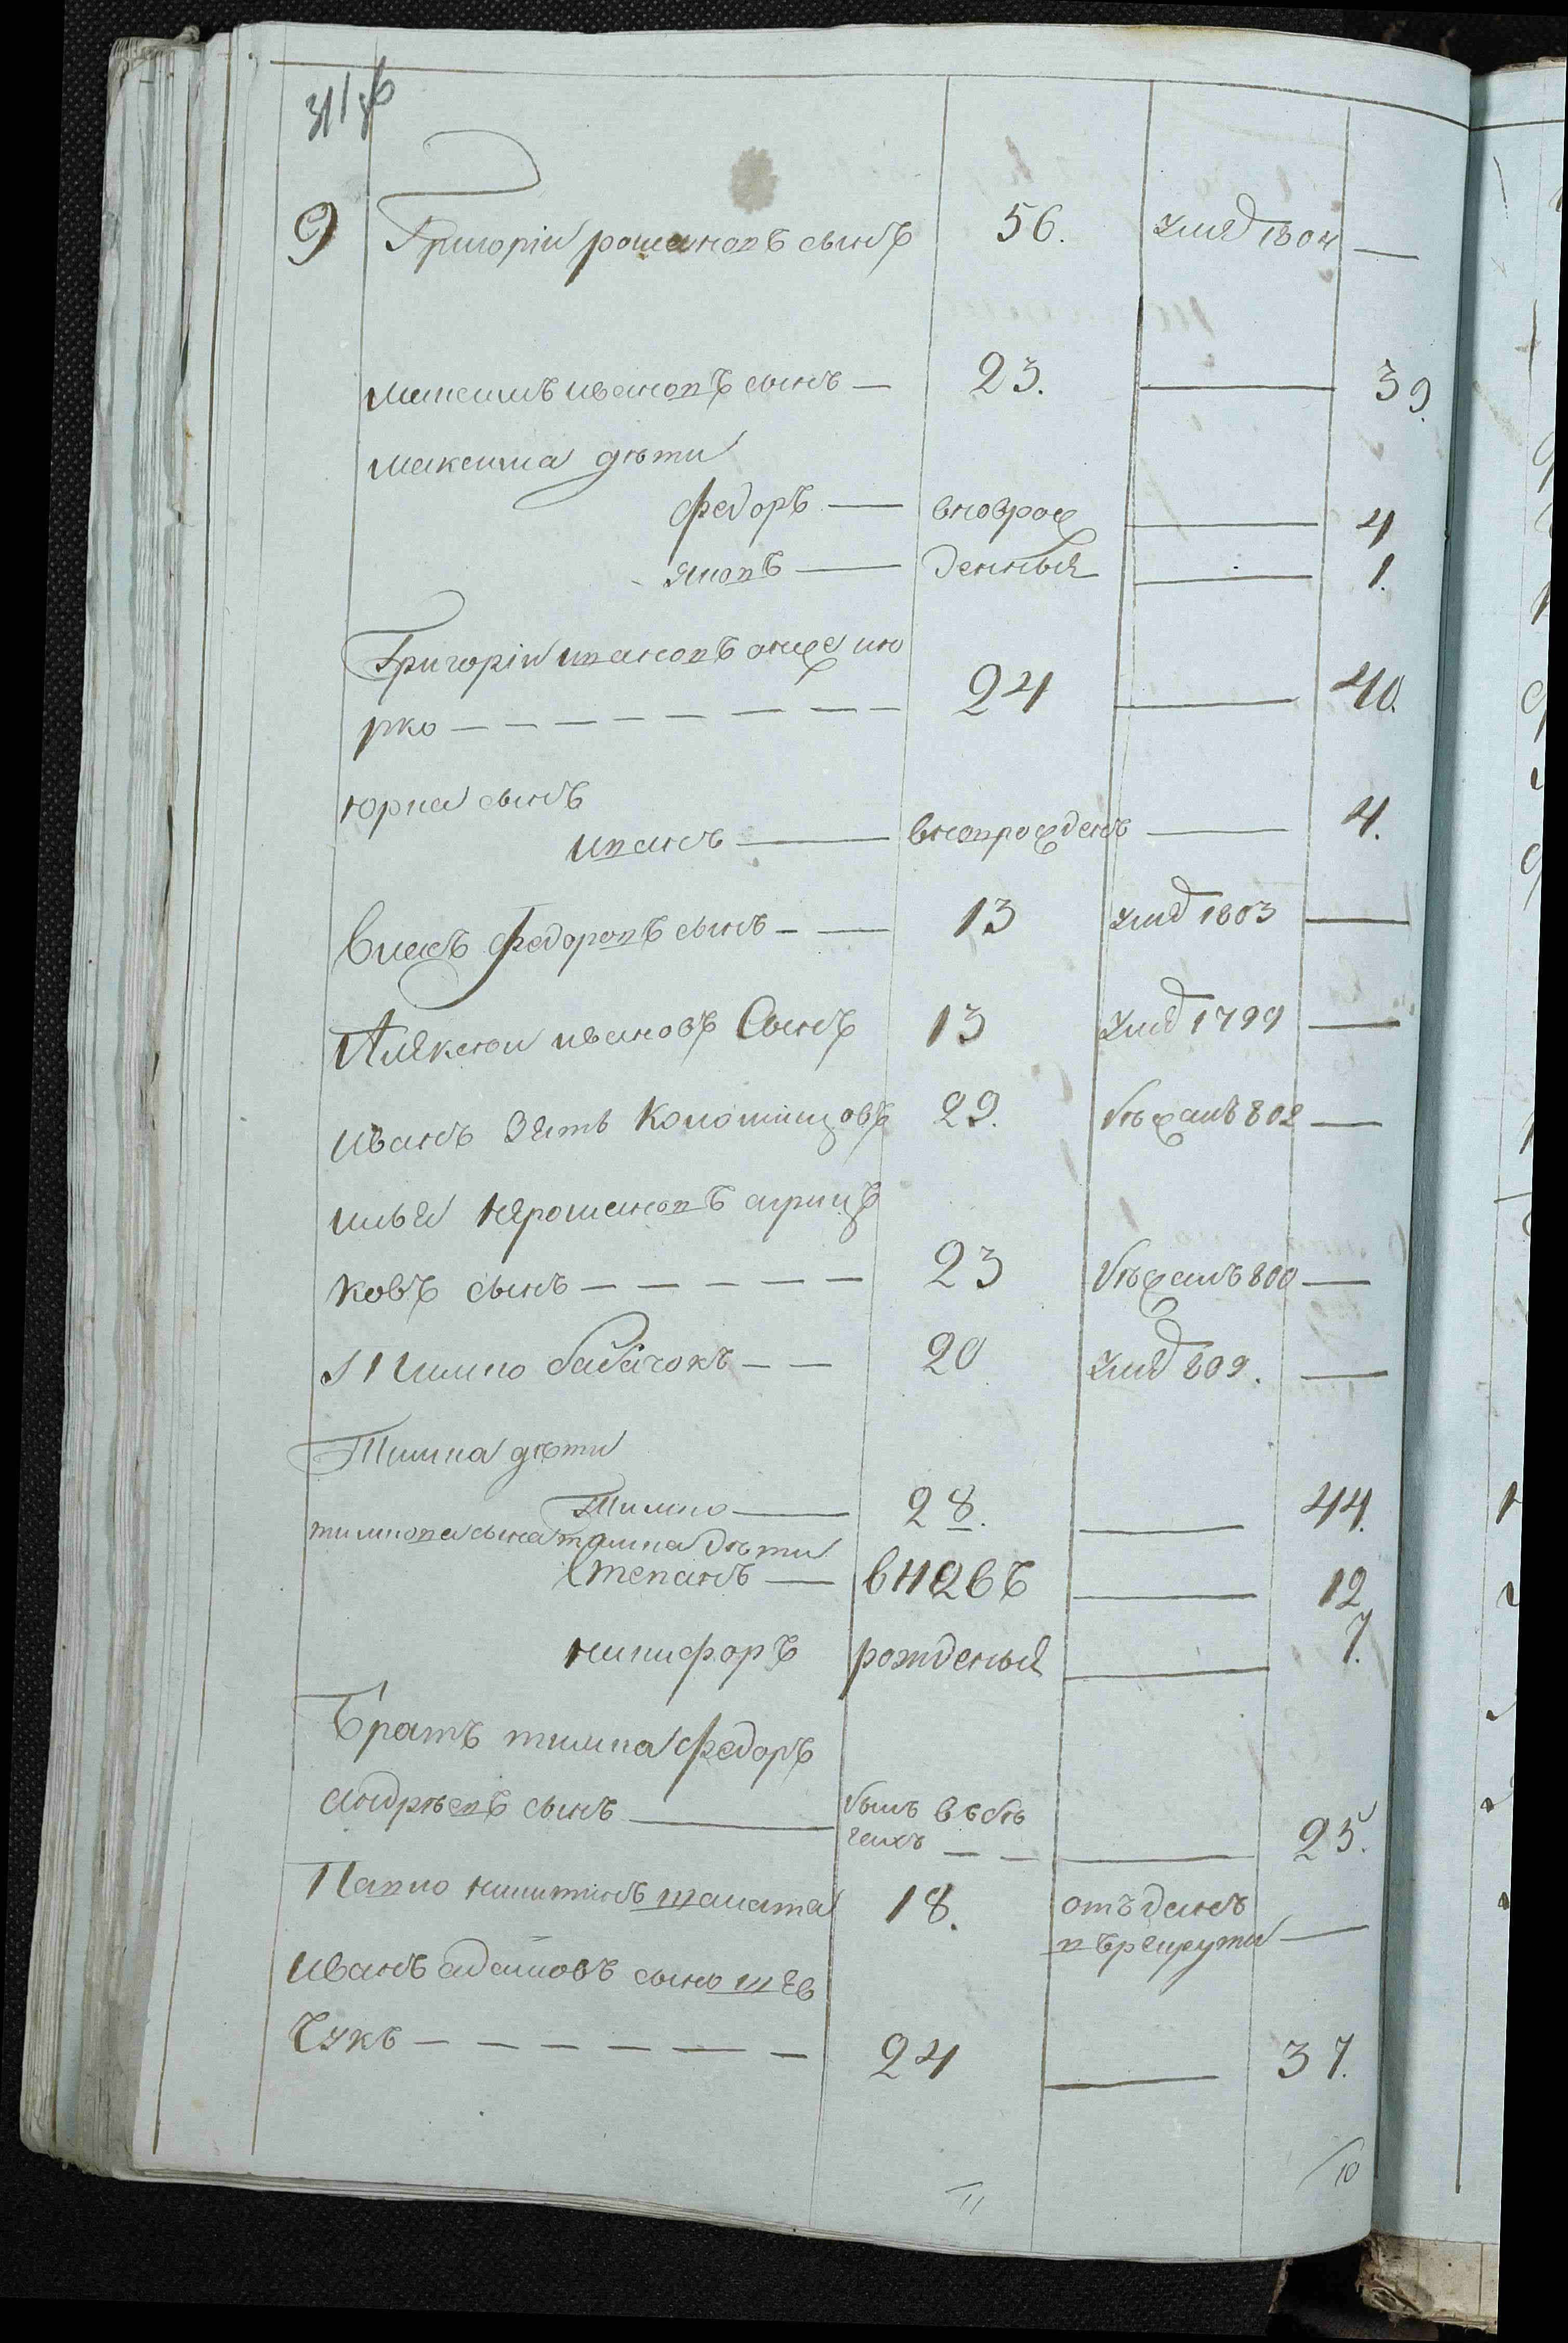 9 Григорій романовъ сынъ 56. умѣр 1804 —
максимъ ивановъ сынъ — 23. — 39.
максима дѣти
федоръ — вноврож — 4
яковъ — денныя — 1.
Григорій ивановъ онже ию
рко — 24 — 40.
юрка сынъ
иванъ — вноврожденъ — 4.
Власъ федоровъ сынъ — 13 умер 1803 —
Алѣксѣй ивановъ Сынъ 13 умер 1799 —
иванъ зять Коломійцовъ 29. бѣжалъ 802 —
илья
ковъ сынъ — 23 бѣжалъ 800 —
Тимко бабачокъ — 20 умер 809. —
Тимка дѣти
Тимко — 28. — 44.
тимкова сына тимка дѣти
степанъ — вновъ — 12
никифоръ рожденыя — 7.
Братъ тимка федоръ
андрѣевъ сынъ — былъ въ бѣ
гахъ — — 25.
Павло никитинъ 18. отъданъ
въ рекруты —
иванъ адамовъ сынъ шев
чукъ — 24 — 37.
11 10